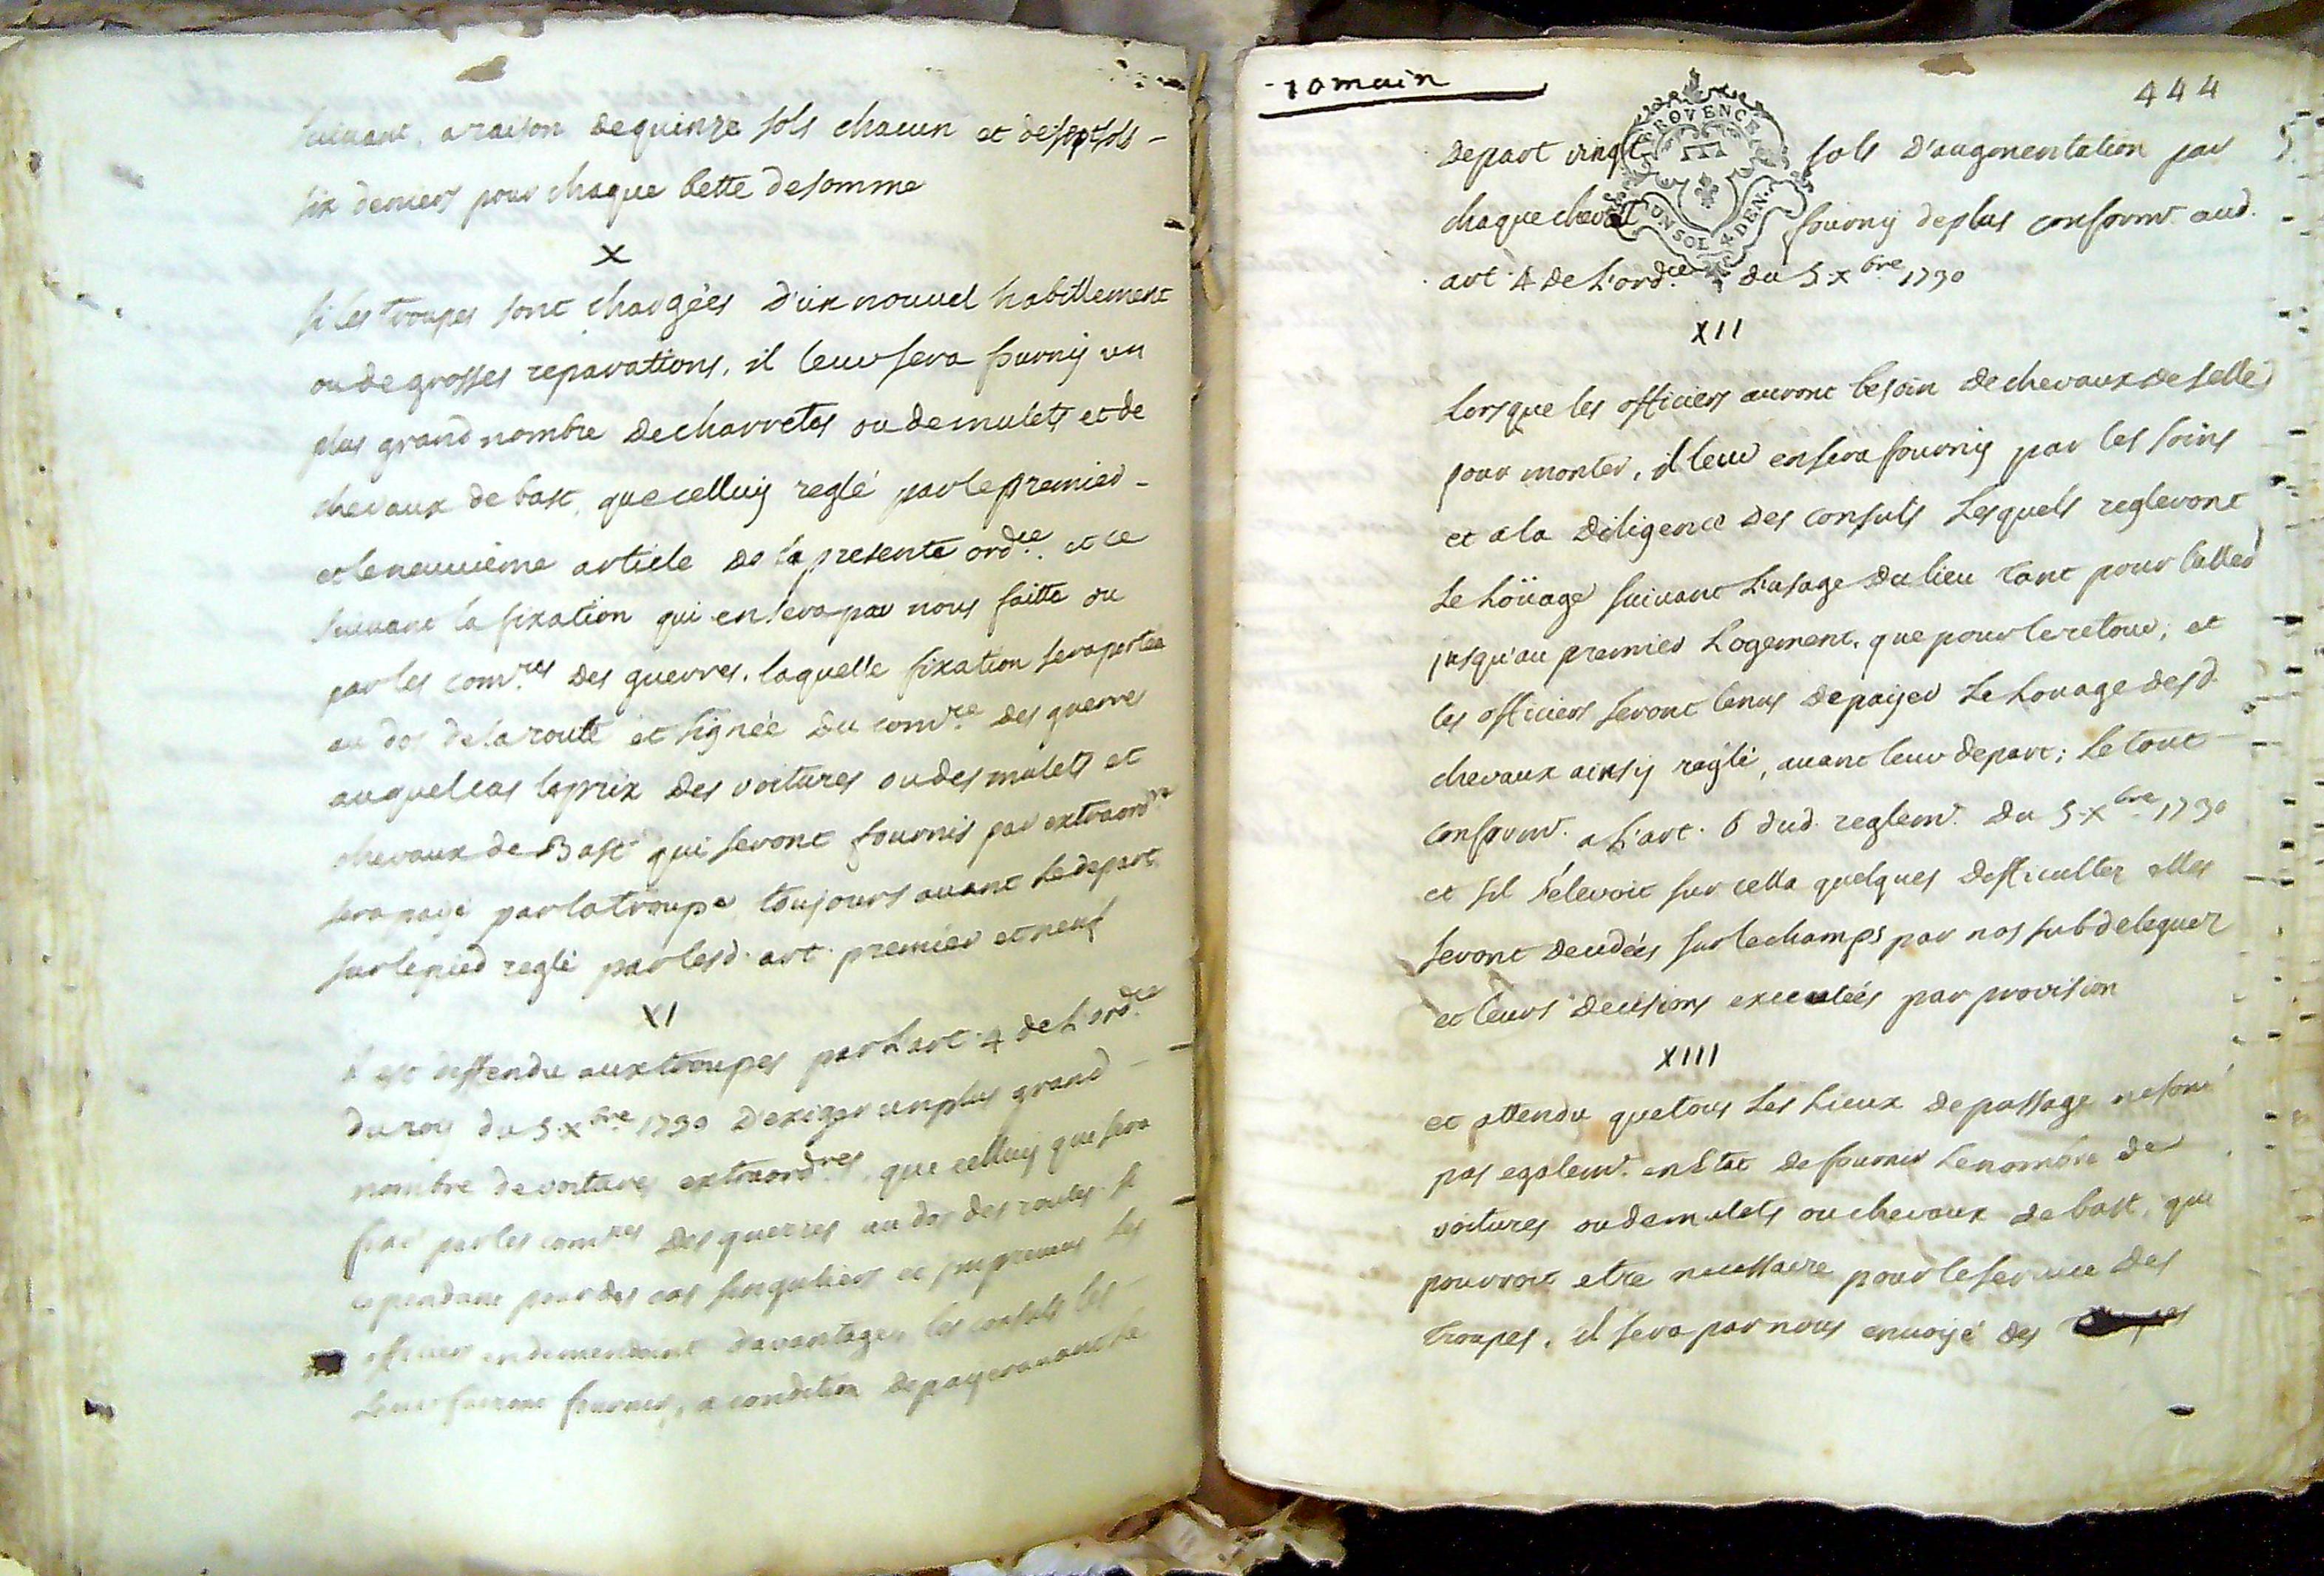 suivant, a raison de quinze sols chacun et de sept sols -
six deniers pour chaque bette de somme
X
si les troupes sont chargées d'un nouvel habillement
ou de grosses reparations, il leur sera fourny un
plus grand nombre de charretes ou de mulets et de
chevaux de bast, que celluy reglé par le premier -
et le neuvième article de la presente ord.ce et ce
suivant la fixation qui en sera par nous faitte ou
par les com.res des guerres, laquelle fixation sera portée
au dos de la route et signée du com.re des guerres
auquel cas le prix des voitures ou des mulets et
chevaux de Bast qui seront fournis par extraord.re
sera payé par la troupe toujours avant le depart
sur le pied reglé par lesd. art. premier et neuf
XI
il est deffendu aux troupes par l'art. 4 de l'ord.ce
du roy du 5 xbre 1730 d'exiger un plus grand -
nombre de voitures extraord.res, que celluy que sera
fixé par les com.res des guerres au dos des routes si
cependant pour des cas singuliers et impreveus les
officiers en demendoint davantage, les consuls les -
leur fairont fournir, a condition de payer avant le
- romain
444
PROVENCE
UN SOL 4 DEN.
depart vingt sols d'augmentation par
chaque cheval fourny de plus conform.t aud.
art. 4 de l'ord.ce du 5 xbre 1730
XII
Lorsque les officiers auront besoin de chevaux de selle
pour monter, il leur en sera fourny par les soins
et a la diligence des consuls lesquels regleront
le loüage suivant l'usage du lieu tant pour l'aller
jusqu'au premier logement, que pour le retour; et
les officiers seront tenus de payer le louage desd.
chevaux ainsy réglé, avant leur depart; le tout -
conform.t a l'art. 6 dud. reglem.t du 5 xbre 1730
et sil s'élevoit sur cella quelques difficultez elles
seront decidées sur le champs par nos subdeleguez
et leurs decisions executées par provision
XIII
et attendu que tous les lieux de passage ne sont
pas egalem.t en état de fournir le nombre de
voitures ou de mulets ou chevaux de bast, que
pourroit etre necessaire pour le service des
troupes, il sera par nous envoyé des